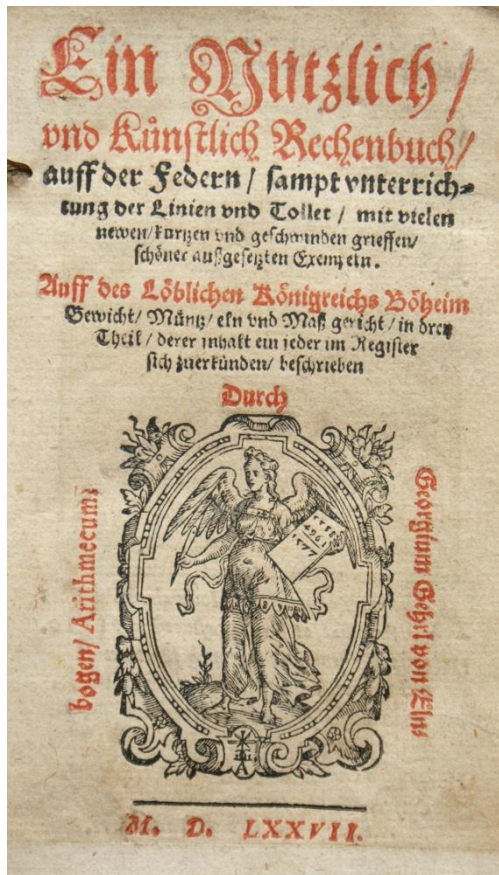 Ein Nutzlich /
vnd Künstlich Rechenbuch /
auff der Federn / sampt vnterrich=
tung der Linien vnd Tollet / mit vielen
newen / kurtzen vnd geschwinden grieffen /
schöner außgesetzten Exempeln.
Auff des Löblichen Königreichs Böheim
Gewicht / Müntz / eln vnd Maß gericht / in drey
Theil / derer inhalt ein jeder im Register
sich zuerkünden / beschrieben
Durch
Georgium Gehrl von Eln=
bogen / Arithmecum;
M. D. LXXVII.